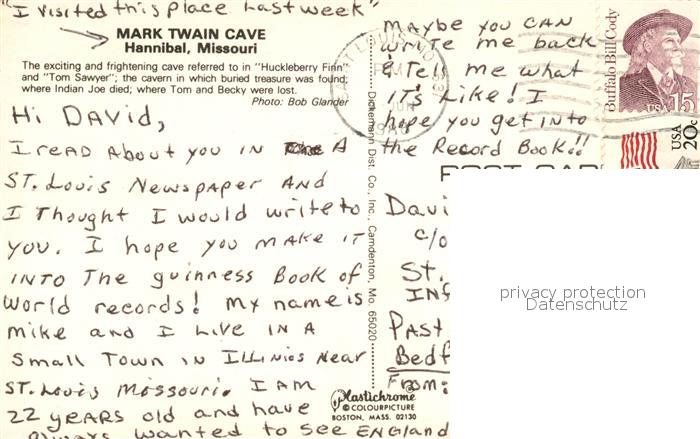 "I visited this place last week"
MARK TWAIN CAVE
Hannibal, Missouri
The exciting and frightening cave referred to in "Huckleberry Finn"
and "Tom Sawyer"; the cavern in which buried treasure was found;
where Indian Joe died; where Tom and Becky were lost.
Photo: Bob Glander
Hi David,
I read About you in A
St. Louis Newspaper And
I Thought I would write to
you. I hope you make it
into The guinness Book of
World records! My name is
mike and I Live in A
Small Town in Illinios Near
St. Louis Missouri. I AM
22 years old and have
always wanted to see England
Maybe you CAN
write me back
& Tell me what
it's Like! I
hope you get into
the Record Book!!
Dickemann Dist. Co., Inc., Camdenton, Mo. 65020
Plastichrome®
© COLOURPICTURE
BOSTON, MASS. 02130
Buffalo Bill Cody
USA 15
USA
20c
Davi
c/o
St.
Inf
Past
Bedf
From:
privacy protection
Datenschutz